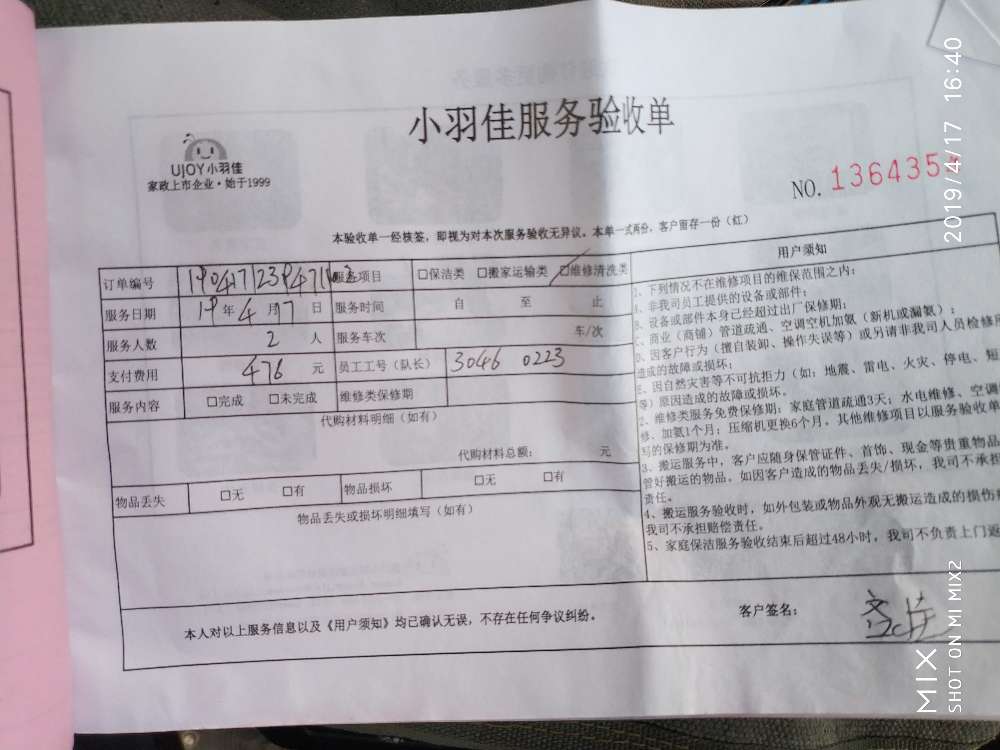 小羽佳服务验收单
UJOY小羽佳
家政上市企业·始于1999
NO. 136435
本验收单一经核签，即视为对本次服务验收无异议。本单一式两份，客户留存一份（红）
订单编号 服务项目 □保洁类 □搬家运输类 □维修清洗类
服务日期 19年4月17日 服务时间 自 至 止
服务人数 2 人 服务车次 车/次
支付费用 476 元 员工工号（队长） 3046 0223
服务内容 □完成 □未完成 维修类保修期
代购材料明细（如有）
代购材料总额： 元
物品丢失 □无 □有 物品损坏 □无 □有
物品丢失或损坏明细填写（如有）
用户须知
1、下列情况不在维修项目的维保范围之内：
A、非我司员工提供的设备或部件；
B、设备或部件本身已经超过出厂保修期；
C、商业（商铺）管道疏通、空调空机加氨（新机或漏氨）；
D、因客户行为（擅自装卸、操作失误等）或另请非我司人员检修
造成的故障或损坏；
E、因自然灾害等不可抗拒力（如：地震、雷电、火灾、停电、短
等）原因造成的故障或损坏。
2、维修类服务免费保修期：家庭管道疏通3天；水电维修、空调
修、加氨1个月；压缩机更换6个月。其他维修项目以服务验收单
写的保修期为准。
3、搬运服务中，客户应随身保管证件、首饰、现金等贵重物品
管好搬运的物品。如因客户造成的物品丢失/损坏，我司不承担
责任。
4、搬运服务验收时，如外包装或物品外观无搬运造成的损伤
我司不承担赔偿责任。
5、家庭保洁服务验收结束后超过48小时，我司不负责上门返
本人对以上服务信息以及《用户须知》均已确认无误，不存在任何争议纠纷。
客户签名：
2019/4/17 16:40
MIX
SHOT ON MI MIX2